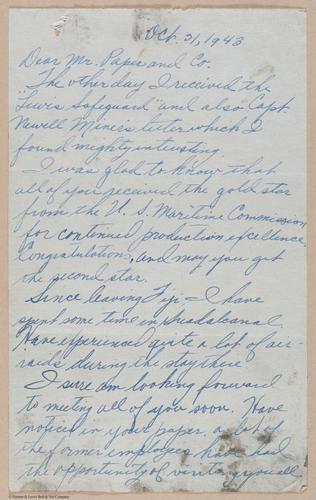 Oct. 31, 1943
Dear Mr. Papes and Co.
The other day I received the
"Lewis Safeguard" and also Capt.
Newell Miner's letter which I
found mighty interesting.
I was glad to know that
all of you received the gold star
from the U. S. Maritime Commission
for continued production excellence.
Congratulations, and may you get
the second star.
Since leaving Fiji I have
spent some time in Guadalcanal.
Have experienced quite a lot of air-
raids during the stay there.
I sure am looking forward
to meeting all of you soon. Have
notice in your paper, a lot of
the former employees have had
the opportunity of visiting you all